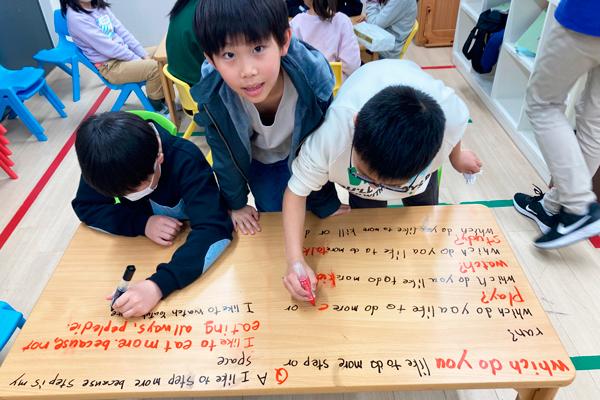 Which do you like to do more step or
ran?
Which do you like to do more or
Play?
Which do you like to do more
watch?
Which do you like to do more talk
Study?
Which do you like to more kill or
Q A I like to step more because step is my
space
I like to eat more, because not
eating all ways, pepledie.
I like to watch